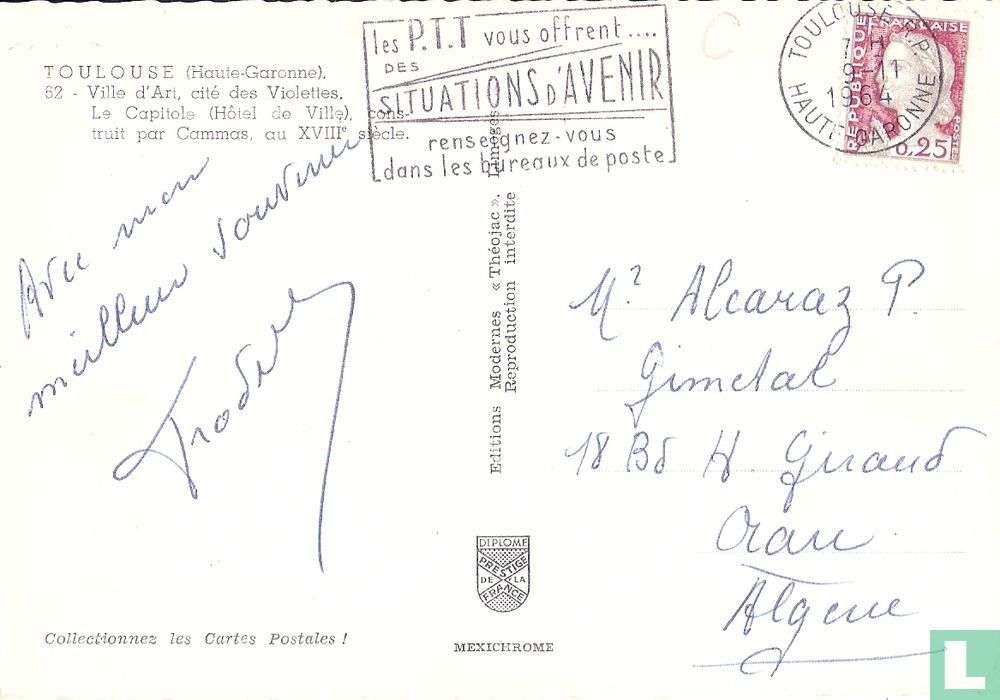 TOULOUSE (Haute-Garonne).
62 - Ville d'Art, cité des Violettes.
Le Capitole (Hôtel de Ville), cons-
truit par Cammas, au XVIIIe siècle.
les P.T.T vous offrent....
DES
SITUATIONS D'AVENIR
renseignez-vous
dans les bureaux de poste
TOULOUSE R.P.
7 H
9-11
1964
HAUTE-GARONNE
REPUBLIQUE
FRANÇAISE
POSTES
0,25
Avec mon
meilleur souvenir
Editions Modernes « Théojac ». Limoges
Reproduction interdite
Mr Alcaraz P.
Gimetal
18 Bd H. Giraud
Oran
Algerie
DIPLOME
PRESTIGE
DE LA
FRANCE
Collectionnez les Cartes Postales !
MEXICHROME
L